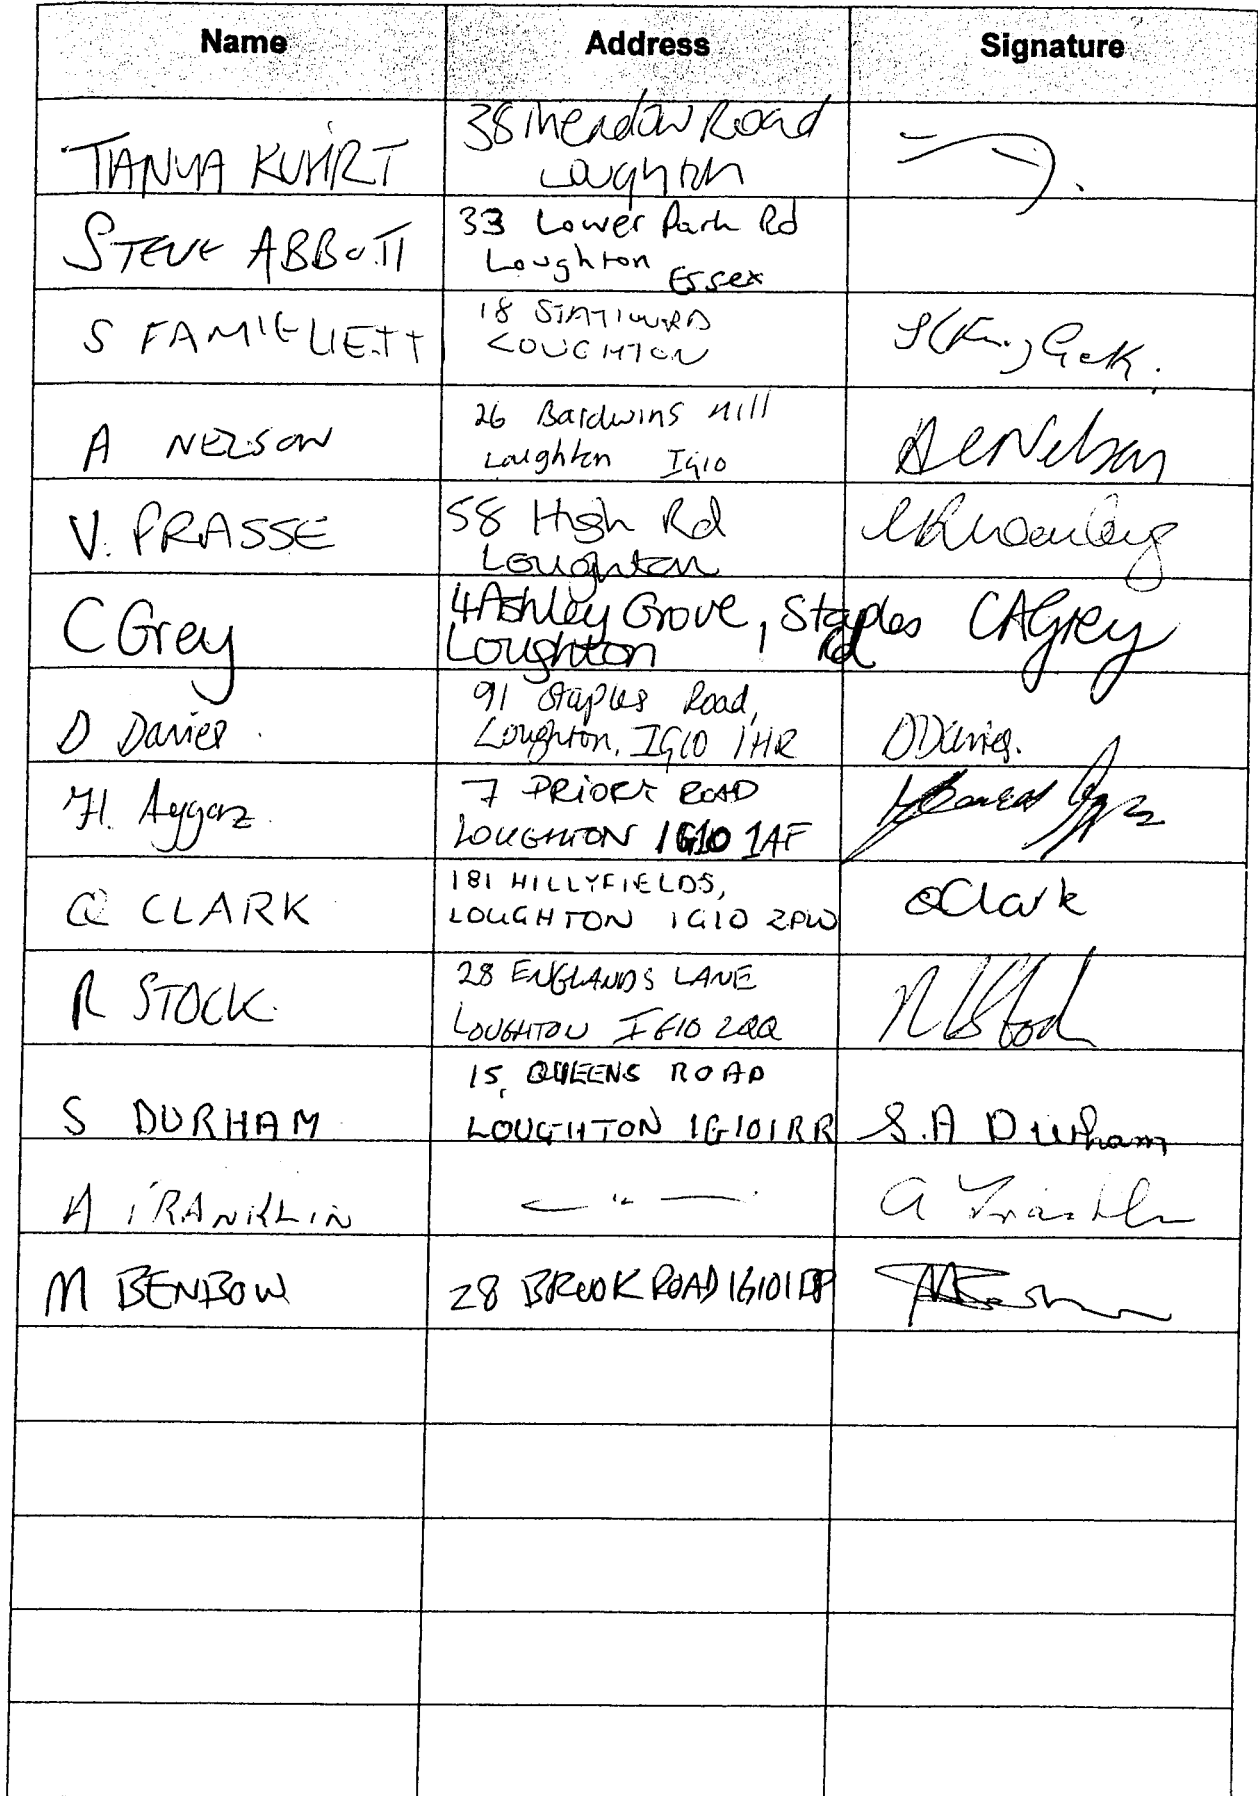 Name Address Signature
TANYA KUHRT 38 Meadow Road
Loughton
STEVE ABBOTT 33 Lower Park Rd
Loughton Essex
S FAMIGLIETT 18 STATION RD
LOUGHTON
A NELSON 26 Baldwins Hill
Loughton IG10
A C Nelson
V. PRASSE 58 High Rd
Loughton
C Grey 4 Ashley Grove, Staples Rd
Loughton
CA Grey
D Davies 91 Staples Road,
Loughton, IG10 1HR
D Davies.
H. Ayyaz 7 PRIORY ROAD
LOUGHTON IG10 1AF
Q CLARK 181 HILLYFIELDS,
LOUGHTON IG10 2PW
Q Clark
R STOCK 28 ENGLANDS LANE
LOUGHTON IG10 2QQ
S DURHAM 15, QUEENS ROAD
LOUGHTON IG10 1RR
S.A Durham
A FRANKLIN — " —
A Franklin
M BENBOW 28 BROOK ROAD IG10 1BP